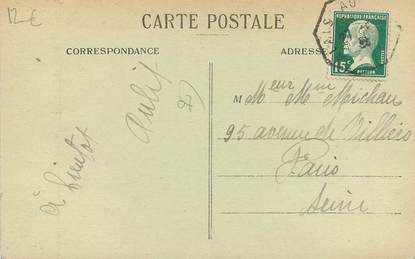 12 €
CARTE POSTALE
CORRESPONDANCE
ADRESSE
REPUBLIQUE FRANÇAISE
15c
POSTES
PASTEUR
à bientôt
M Meur Mme Michau
95 avenue de Villiers
Paris
Seine